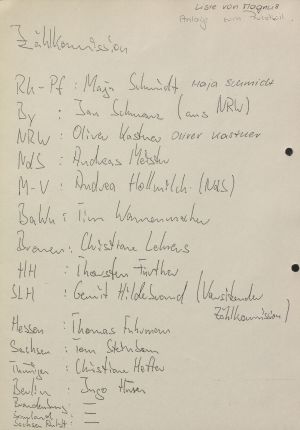 Liste von Magnus
Anlage zum Protokoll
Zählkommission
Rh-Pf : Maja Schmidt Maja Schmidt
By : Jan Schwarz (aus NRW)
NRW : Oliver Kastner Oliver Kastner
NdS : Andreas
M-V : Andrea Hollmilch (NdS)
BaWü : Tim Wannenmacher
Bremen : Christiane Lehrens
HH : Thorsten Further
SLH : Gerrit Hildebrand (Vorsitzender
Zählkommission)
Hessen : Thomas Fuhrmann
Sachsen : Tom
Thüringen : Christiane Hefter
Berlin : Ingo
Brandenburg: —
Saarland : —
Sachsen Anhalt: —